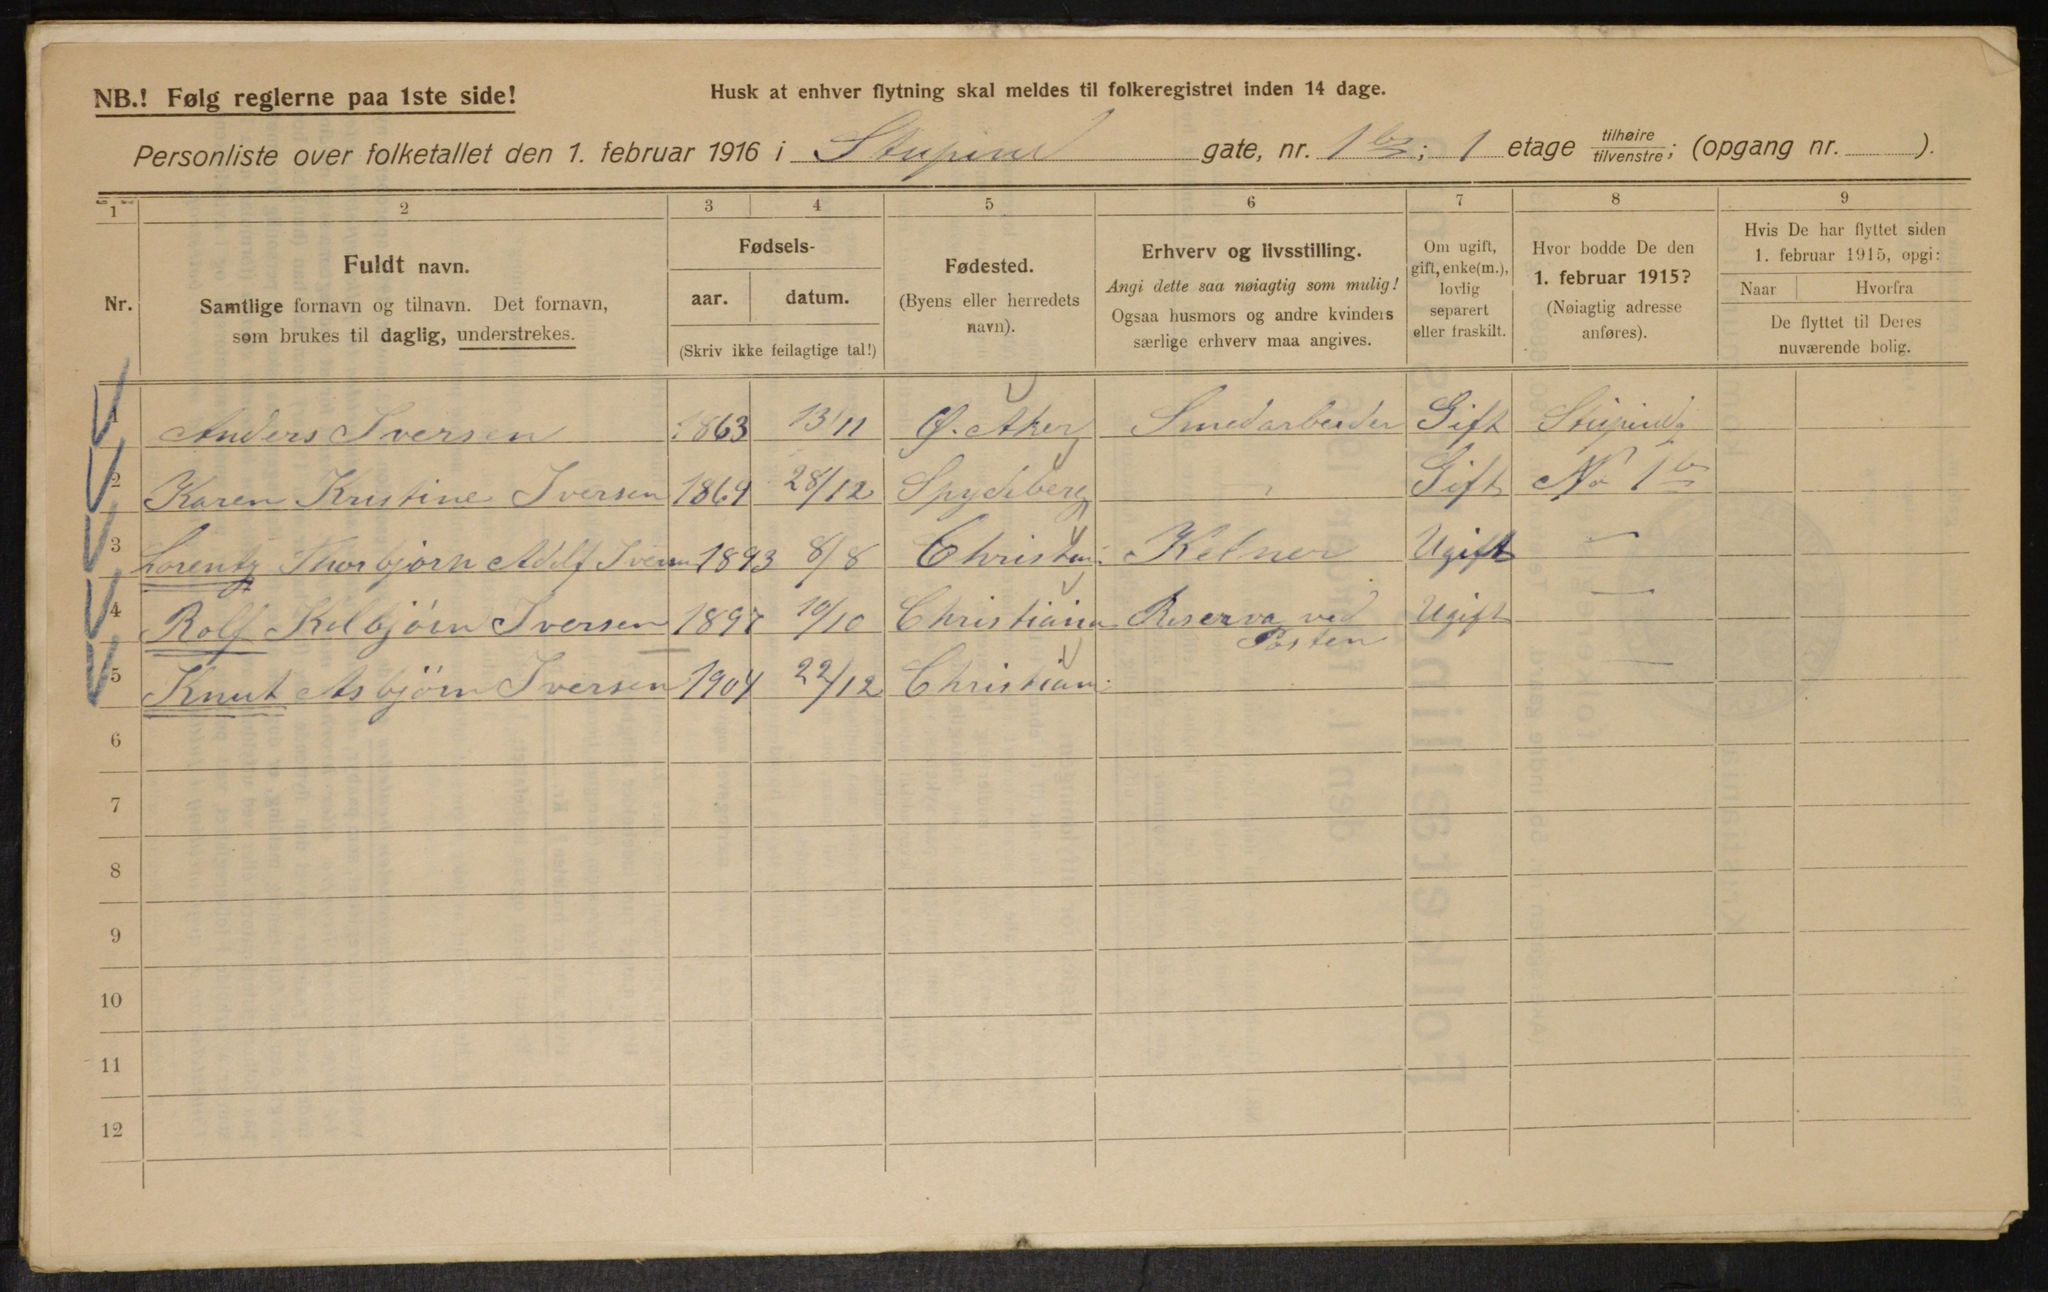 NB.! Følg reglerne paa 1ste side!
Husk at enhver flytning skal meldes til folkeregistret inden 14 dage.
Personliste over folketallet den 1. februar 1916 i Stupind gate, nr. 1b; 1 etage tilhøire tilvenstre; (opgang nr. ).
1 2 3 4 5 6 7 8 9
Nr.
Fuldt navn.
Samtlige fornavn og tilnavn. Det fornavn,
som brukes til daglig, understrekes.
Fødsels-
aar. datum.
(Skriv ikke feilagtige tal!)
Fødested.
(Byens eller herredets
navn).
Erhverv og livsstilling.
Angi dette saa nøiagtig som mulig!
Ogsaa husmors og andre kvinders
særlige erhverv maa angives.
Om ugift,
gift, enke(m.),
lovlig
separert
eller fraskilt.
Hvor bodde De den
1. februar 1915?
(Nøiagtig adresse
anføres).
Hvis De har flyttet siden
1. februar 1915, opgi:
Naar Hvorfra
De flyttet til Deres
nuværende bolig.
1 Anders Iversen 1863 13/11 Ø. Aker Smedarbeider Gift Stupindg
2 Karen Kristine Iversen 1869 28/12 Spydeberg Gift No 1b
3 Lorentz Thorbjørn Adolf Iversen 1893 8/8 Christian Kelner Ugift —
4 Rolf Kolbjörn Iversen 1897 10/10 Christiania Reserva ved Ugift —
Posten
5 Knut Asbjørn Iversen 1904 22/12 Christian —
6
7
8
9
10
11
12